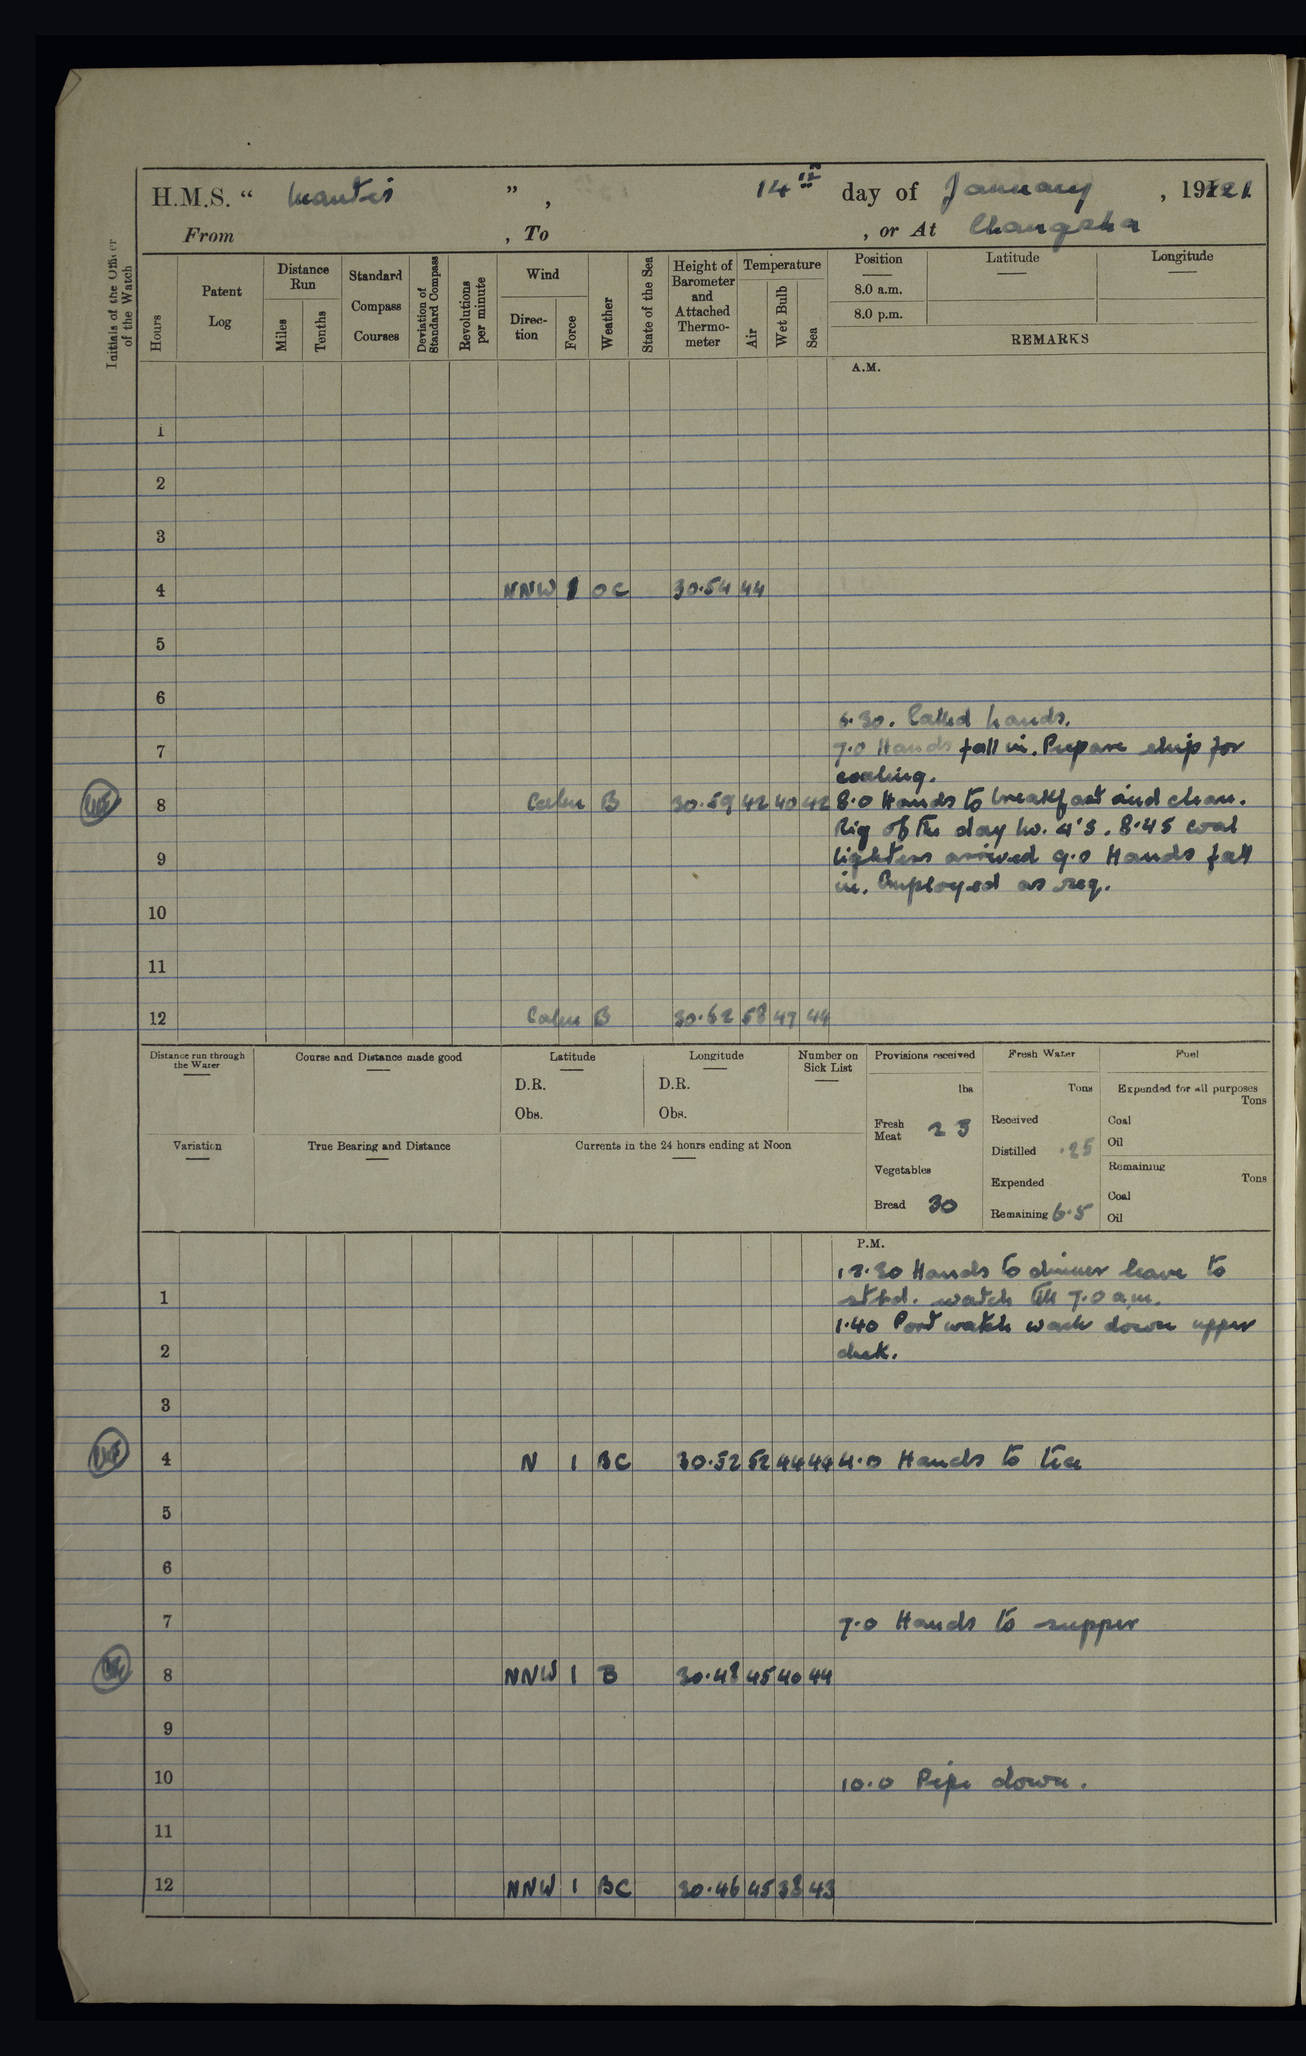 H.M.S. “ Mantis ”, 14th day of January , 1921
From , To , or At Changsha
Initials of the Officer of the Watch
Hours
Patent Log
Distance Run
Miles
Tenths
Standard Compass Courses
Deviation of Standard Compass
Revolutions per minute
Wind
Direc-tion
Force
Weather
State of the Sea
Height of Barometer and Attached Thermo-meter
Temperature
Air
Wet Bulb
Sea
Position
8.0 a.m.
8.0 p.m.
Latitude
Longitude
REMARKS
A.M.
1
2
3
4 NNW 1 OC 30.54 44
5
6
6.30. Called hands.
7 7.0 Hands fall in. Prepare ship for
coaling.
8 Calm B 30.59 42 40 42 8.0 Hands to breakfast and clean.
Rig of the day No. 4's. 8.45 coal
9 lighters arrived 9.0 Hands fall
in. Employed as req.
10
11
12 Calm B 30.62 58 47 44
Distance run through the Water
Course and Distance made good
Latitude
D.R.
Obs.
Longitude
D.R.
Obs.
Number on Sick List
Provisions received
lbs
Fresh Meat 23
Vegetables
Bread 30
Fresh Water
Tons
Received
Distilled .25
Expended
Remaining 6.5
Fuel
Expended for all purposes
Tons
Coal
Oil
Remaining
Tons
Coal
Oil
Variation
True Bearing and Distance
Currents in the 24 hours ending at Noon
P.M.
12.30 Hands to dinner leave to
1 stbd. watch till 7.0 a.m.
1.40 Port watch wash down upper
2 deck.
3
4 N 1 BC 30.52 52 44 44 4.0 Hands to tea
5
6
7 7.0 Hands to supper
8 NNW 1 B 30.48 45 40 44
9
10 10.0 Pipe down.
11
12 NNW 1 BC 30.46 45 38 43